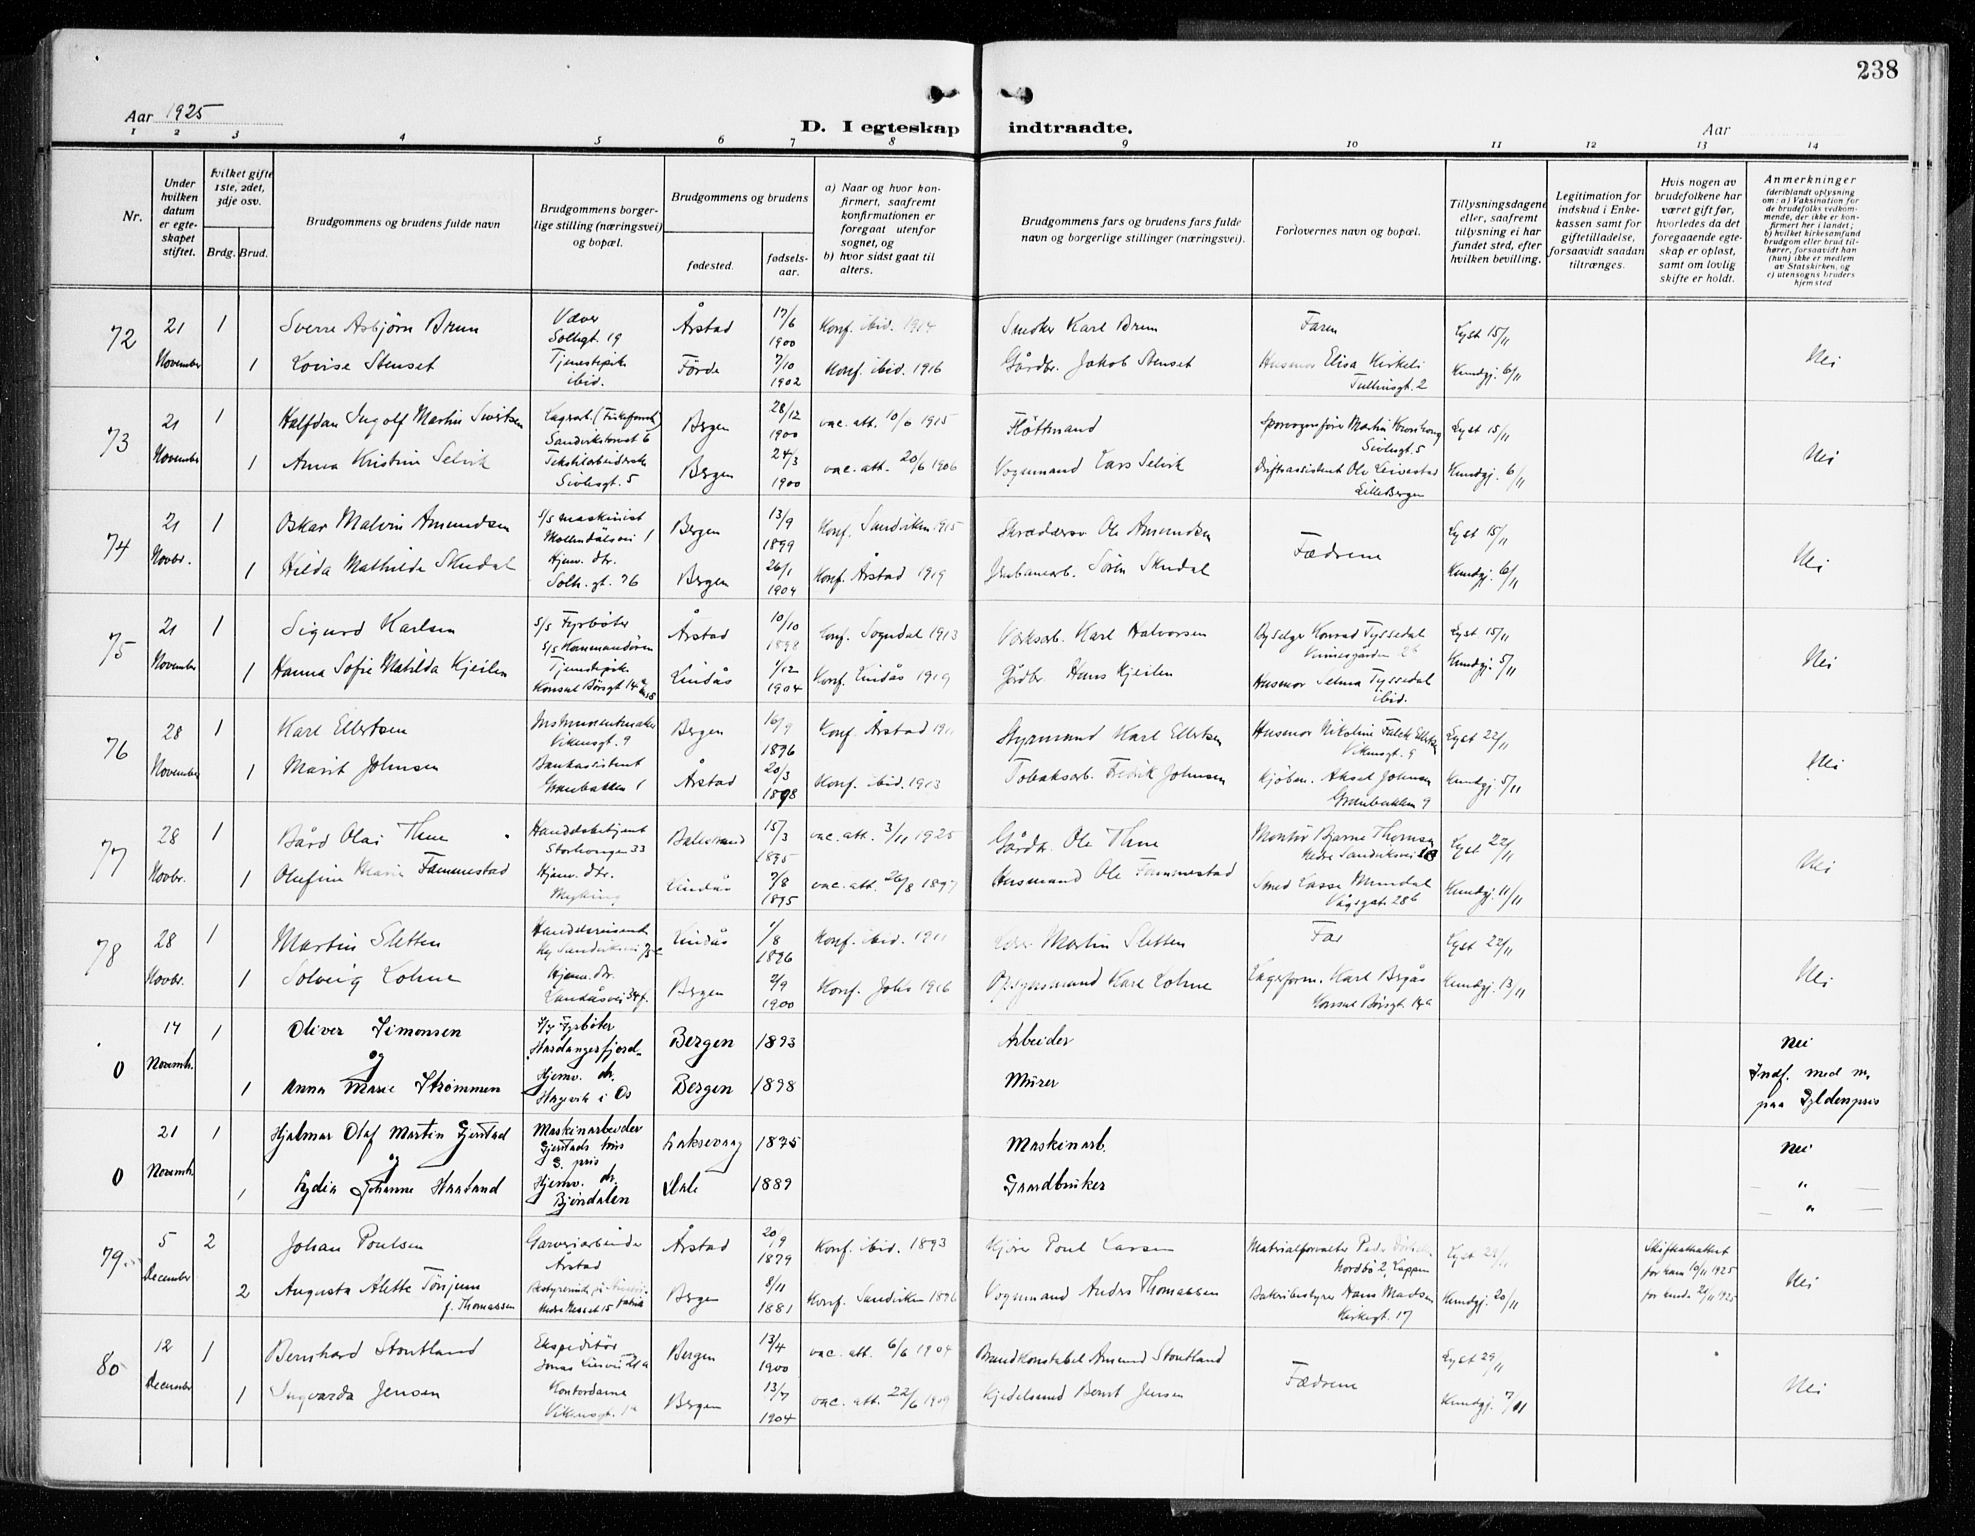 238
Aar 1925
D. I egteskap indtraadte.
Aar
1 2 3 4 5 6 7 8 9 10 11 12 13 14
Nr.
Under hvilken datum er egteskapet stiftet.
hvilket gifte 1ste, 2det, 3dje osv.
Brdg. Brud.
Brudgommens og brudens fulde navn
Brudgommens borgerlige stilling (næringsvei) og bopæl.
Brudgommens og brudens
fødested.
fødselsaar.
a) Naar og hvor konfirmert, saafremt konfirmationen er foregaat utenfor sognet, og
b) hvor sidst gaat til alters.
Brudgommens fars og brudens fars fulde navn og borgerlige stillinger (næringsvei).
Forlovernes navn og bopæl.
Tillysningsdagene eller, saafremt tillysning ei har fundet sted, efter hvilken bevilling.
Legitimation for indskud i Enkekassen samt for giftetilladelse, forsaavidt saadan tiltrænges.
Hvis nogen av brudefolkene har været gift før, hvorledes da det foregaaende egteskap er opløst, samt om lovlig skifte er holdt.
Anmerkninger
(deriblandt oplysning om: a) Vaksination for de brudefolks vedkommende, der ikke er konfirmert her i landet; b) hvilket kirkesamfund brudgom eller brud tilhører, forsaavidt han (hun) ikke er medlem av Statskirken, og c) utensogns bruders hjemsted
72 21 1 Sverre Asbjørn Brun Væver Solhgt. 19 Årstad 17/6 1900 Konf. ibid. 1914 Smeder Karl Brun Faren Lyst 15/11
November 1 Lovise Stenset Tjenestepik ibid. Förde 7/10 1902 Konf. ibid. 1916 Gårdbr. Jakob Stenset Husmor Elisa Kirkeli Tullinsgt. 2 Kundgj. 6/11 Nei
73 21 1 Halfdan Ingolf Martin Sivertsen Sandvikstorvet 6 Bergen 28/12 1900 vac. att. 10/6 1915 Fløttmand Martin Sivlesgt. 5 Lyst 15/11
November 1 Anna Kristine Selvik Tekstilarbeiderske Sivlesgt. 5 Bergen 24/3 1900 vac. att. 20/6 1906 Vognmand Lars Selvik Driftsassistent Ole Leivestad Lille Bergen Kundgj. 6/11 Nei
74 21 1 Oskar Malvin Amundsen S/S maskinist Møllendalsvei 1 Bergen 13/9 1899 Konf. Sandviken 1915 Skrædersv. Ole Amundsen Fædrene Lyst 15/11
Novbr. 1 Hilda Mathilde Skudal Hjemv. dtr. Solh. gt. 76 Bergen 26/1 1904 Konf. Årstad 1919 Jernbanearb. Sören Skudal Kundgj. 6/11 Nei
75 21 1 Sigurd Karlsen S/S Fyrbøter S/S Kommandören Årstad 10/10 1898 Konf. Sogndal 1913 Værksarb. Karl Halvorsen Konrad Tyssedal Lyst 15/11
November 1 Hanna Sofie Matilda Kjeilen Tjenestepik Konsul Børsgt 14 Lindås 1/12 1904 Konf. Lindås 1919 Gårdbr. Hans Kjeilen Husmor Selma Tyssedal ibid. Kundgj. 5/11 Nei
76 28 1 Karl Ellertsen Instrumentmaker Vikensgt. 9 Bergen 16/9 1896 Konf. Årstad 1911 Styrmand Karl Ellertsen Husmor Nikoline Falck Ellertsen Vikensgt. 9 Lyst 22/11
November 1 Marit Johnsen Bankassistent Granbakken 1 Årstad 20/3 1898 Konf. ibid. 1913 Tobaksarb. Fredrik Johnsen Kjøbm. Aksel Johnsen Granbakken 9 Kundgj. 5/11 Nei
77 28 1 Bård Olai Thue Handelsbetjent Storhaugen 33 Balestrand 15/3 1895 vac. att. 3/11 1925 Gårdbr. Ole Thue Montör Bjarne Thomsen Nedre Sandviksvei Lyst 22/11
Novbr. 1 Olufine Marie Fammestad Hjemv. dtr. Myking Lindås 7/8 1895 vac. att. 26/8 1897 Husmand Ole Fammestad Smed Lasse Mundal Vågsgate 28b Kundgj. 11/11 Nei
78 28 1 Martin Sletten Handelsreisende Lindås 1/8 1896 Konf. ibid. 1911 Martin Sletten Far Lyst 22/11
Novbr. 1 Solveig Lohne Hjemv. dtr. Landåsvei 34f. Bergen 2/9 1900 Konf. Johs 1916 Opsynsmand Karl Lohne Lageform. Karl Bergås Konsul Børsgt. 14a Kundgj. 13/11 Nei
0 14 1 Oliver Simonsen S/S Fyrbøter "Hardangerfjord" Bergen 1893 Arbeider Nei
Novemb. og
1 Anna Marie Strømmen Hjemv. dt. Hagevik i Os Bergen 1898 Murer Indf. med m. paa Gyldenpris
0 21 1 Hjalmar Olaf Martin Gjerstad Maskinarbeider Gjerstads hus G. pris Laksevaag 1875 Maskinarb. Nei
Novemb. og
1 Lydia Johanne Haaland Hjemv. dt. Bjørndalen Dale 1889 Gaardbruker " "
79 5 2 Johan Poulsen Garveriarbeider Årstad Årstad 20/9 1879 Konf. ibid. 1893 Kjører Poul Larsen Materialforvalter Peder Nordbø 2, Loppen Lyst 29/11 Skifteattattest for ham 10/11 1925
December 2 Augusta Alette Tönjum f. Thomassen Nedre Nesset 15 Bergen 8/11 1881 Konf. Sandviken 1896 Vognmand Anders Thomassen Bakeribestyrer Hans Madsen Kirkegt. 17 Kundgj. 20/11 for hende 21/11 1925 Nei
80 12 1 Bernhard Stoutland Ekspeditör Jonas Liesvei 21a Bergen 13/4 1900 vac. att. 6/6 1904 Brandkonstabel Amund Stoutland Fædrene Lyst 29/11
December 1 Ingvarda Jensen Kontordame Vikensgt. 1a Bergen 13/7 1904 vac. att. 22/6 1909 Kjedelsmed Bernt Jensen Kundgj. 7/11 Nei